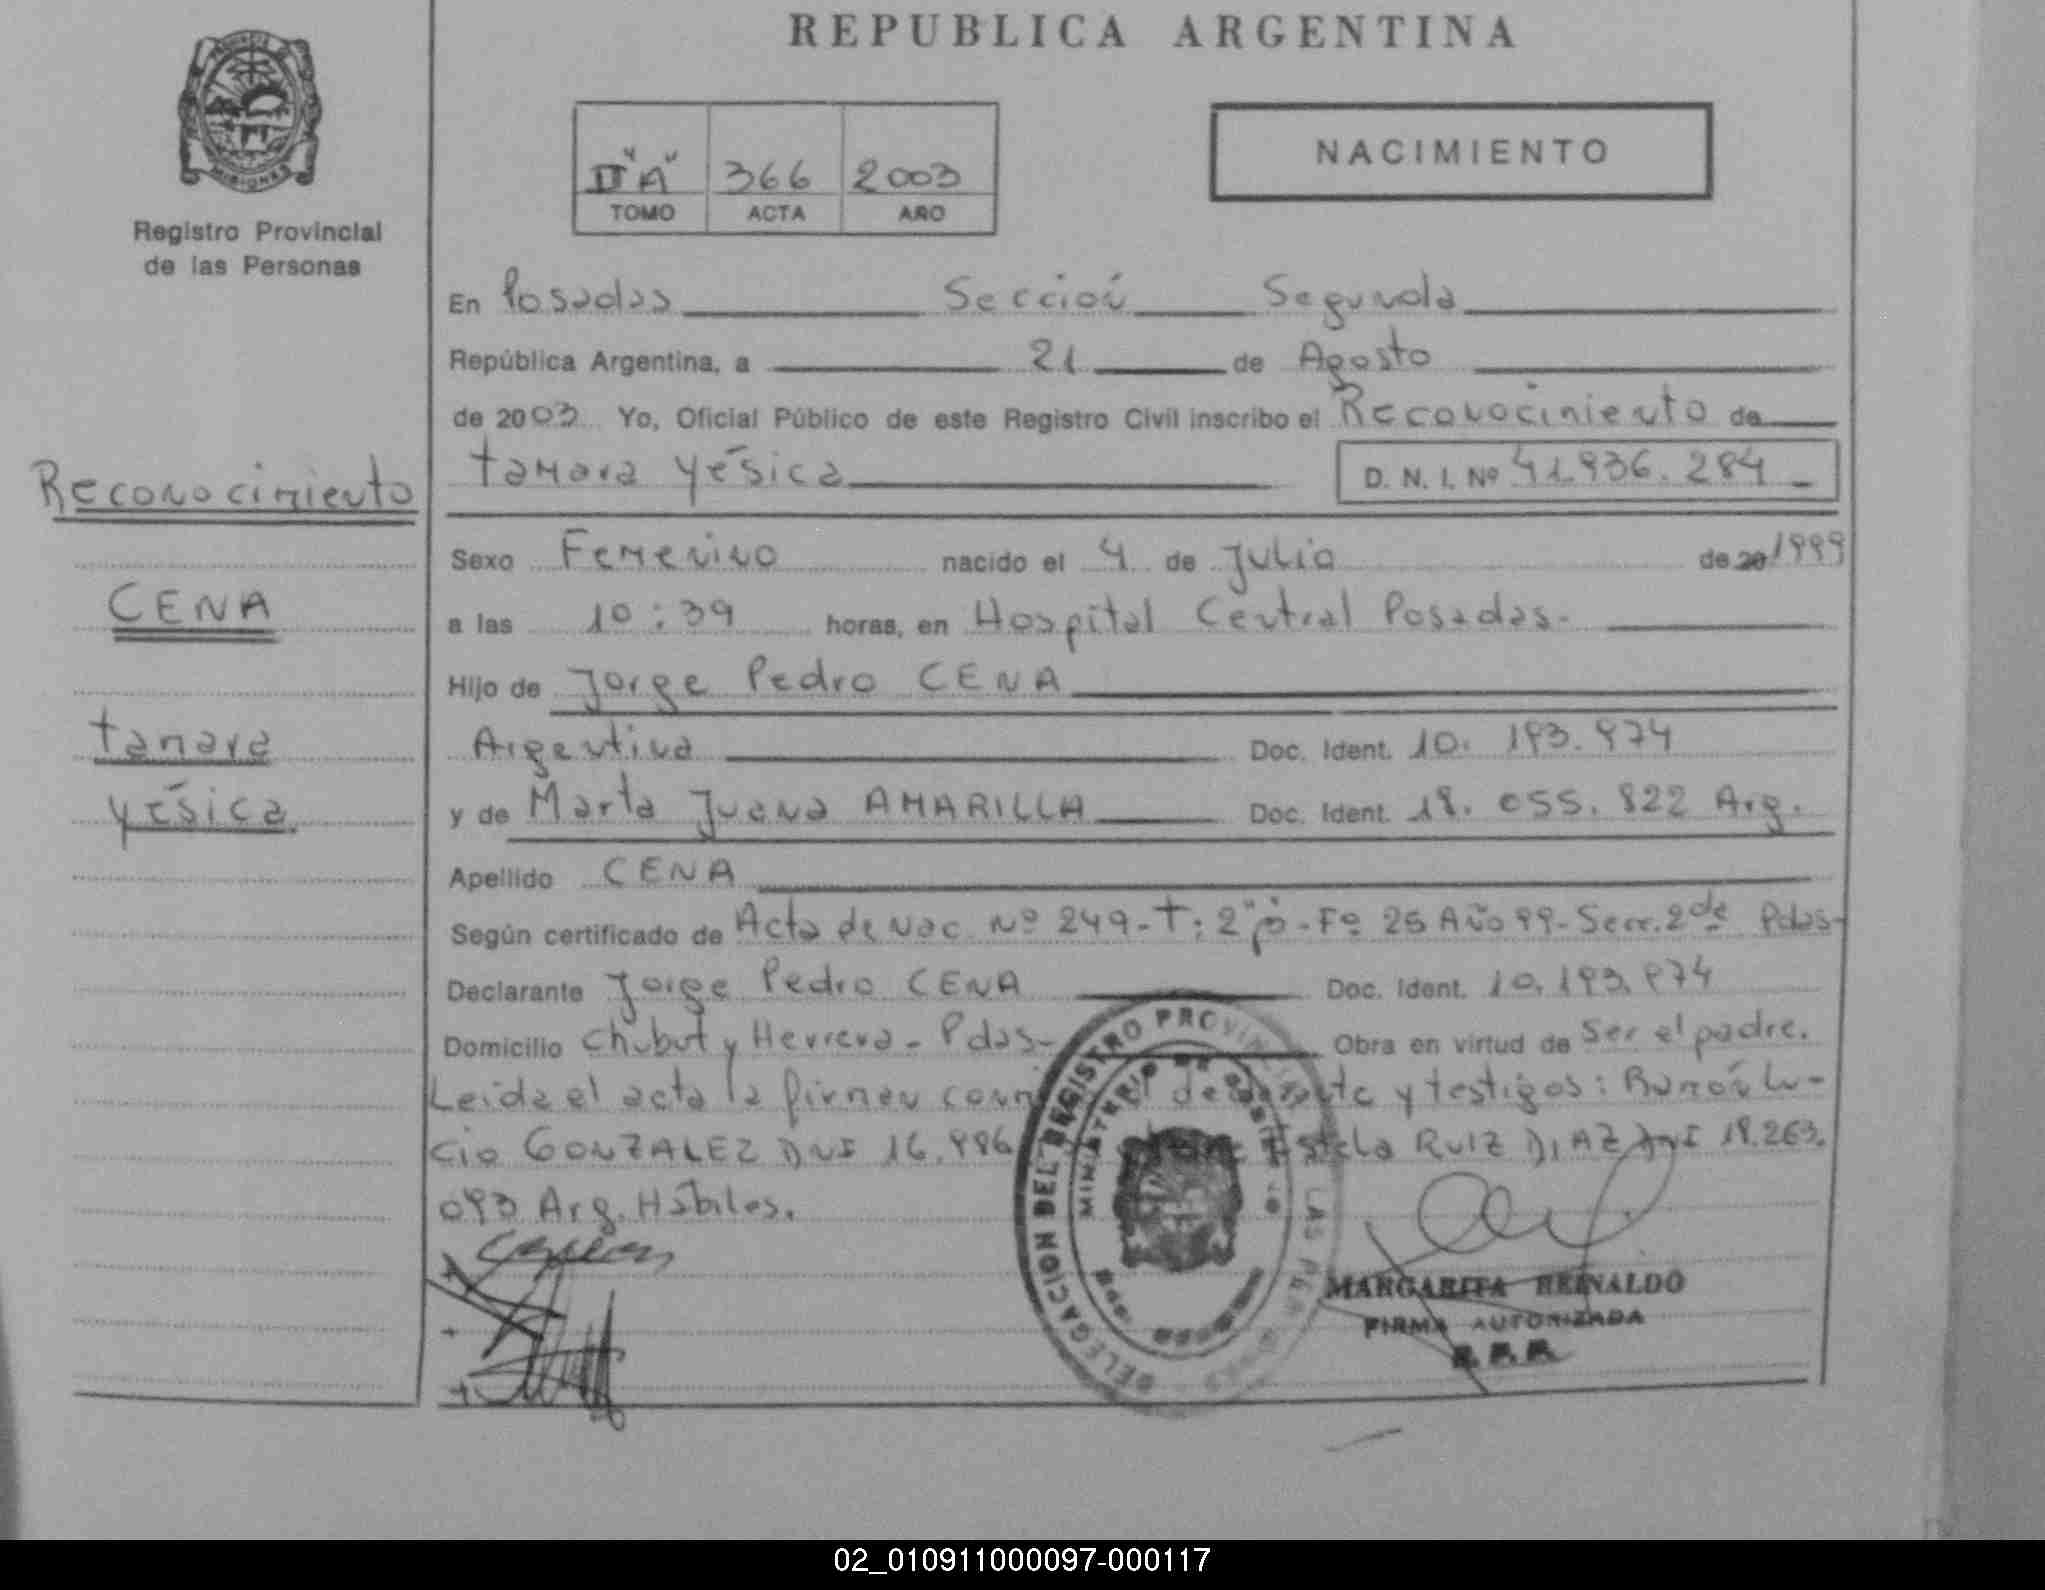 REPUBLICA ARGENTINA
MISIONES
Registro Provincial
de las Personas
II "A" 366 2003
TOMO ACTA AÑO
NACIMIENTO
En Posadas Sección Segunda
República Argentina, a 21 de Agosto
de 2003 Yo, Oficial Público de este Registro Civil inscribo el Reconocimiento de
Tamara Yésica D. N. I. Nº 41.936.284
Reconocimiento
CENA
Tamara
Yésica
Sexo Femenino nacido el 4 de Julio de 20 1999
a las 10:39 horas, en Hospital Central Posadas.
Hijo de Jorge Pedro CENA
Argentina Doc. Ident. 10.193.974
y de Marta Juana AMARILLA Doc. Ident. 18.055.822 Arg.
Apellido CENA
Según certificado de Acta de Nac. Nº 249-T: 2 Fº 25 Año 99-Secc. 2da Pdas-
Declarante Jorge Pedro CENA Doc. Ident. 10.193.974
Domicilio Chubut y Herrera - Pdas- Obra en virtud de Ser el padre.
Leida el acta la firman y testigos: Ramón Lu-
cio GONZALEZ DNI 16.986 Estela RUIZ DIAZ DNI 18.263.
093 Arg. Hábiles.
DELEGACION DEL REGISTRO PROVINCIAL LAS PERSONAS
MINISTERIO DE GOBIERNO
MARGARITA REINALDO
FIRMA AUTORIZADA
02_010911000097-000117